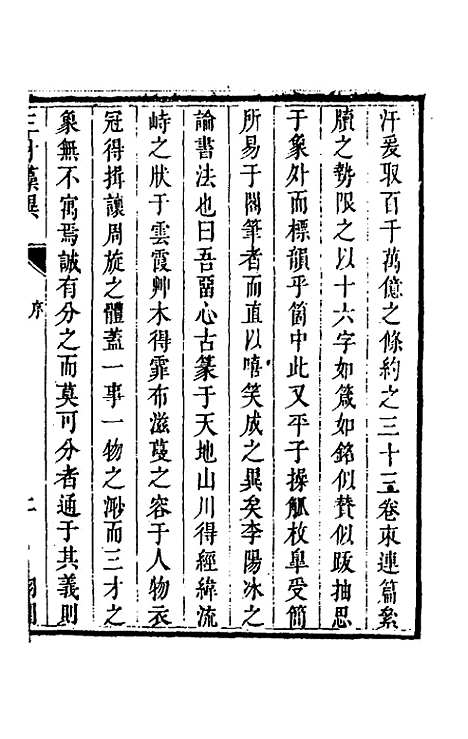 汗爰取百千萬億之條約之三十三卷束連篇絫
牘之勢限之以十六字如箴如銘似贊似跋抽思
于象外而標韻乎箇中此又平子操觚枚臯受簡
所易于閣筆者而直以嘻笑成之異矣李陽冰之
論書法也曰吾畱心古篆于天地山川得經緯流
峙之狀于雲霞艸木得霏布滋蔓之容于人物衣
冠得揖讓周旋之體蓋一事一物之渺而三才之
象無不寓焉誠有分之而莫可分者通于其義則
序
二